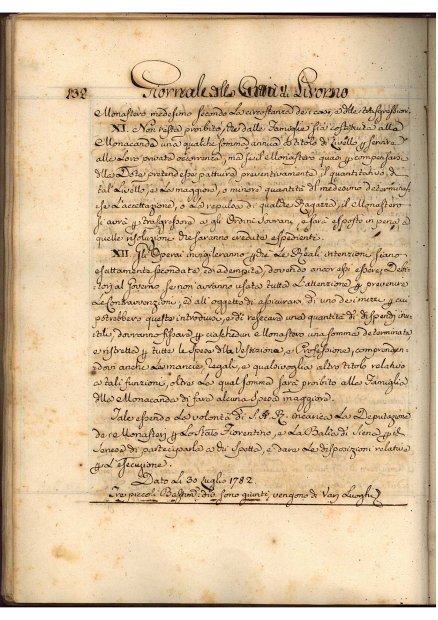 132 Giornale della Città di Livorno
Monastero medesimo secondo le circostanze de' casi, e delle trasgressioni.
XI. Non resta proibito, che dalle Famiglie sia costituita alla
Monacanda una qualche somma annua a titolo di Livello per servire
alle Loro private occorrenze, ma se il Monastero quasi per compensarsi
della Dote pretendesse pattuire preventivamente il quantitativo di
tal Livello, e la maggiore, o minore quantità del medesimo determinas-
se l'accettazione, o la repulsa di qualche Ragazza, il Monastero
si avrà per trasgressore agli Ordini Sovrani, e sarà esposto in pena a
quelle risoluzioni che saranno credute espedienti.
XII. Gli Operai invigileranno perchè le Reali intenzioni siano
esattamente secondate ed adempite, dovendo ancor essi essere Debi-
tori al Governo se non avranno usata tutta l'attenzione per prevenire
le contravvenzioni, ed all'oggetto di assicurarsi di uno dei mezzi per cui
potrebbero queste introdursi, e di resecare una quantità di dispendj inu-
tili, dovranno fissare per ciaschedun Monastero una somma determinata
e ristretta per tutte le Spese della Vestizione, e Professione, comprenden-
dovi anche le mancie, regali, e qualsivoglia altro titolo relativo
a tali funzioni, oltre la qual somma sarà proibito alla Famiglia
della Monacanda di fare alcuna spesa maggiore.
Tale essendo la volontà di S. A. R. incarica la Deputazione
de' Monasterj per lo Stato Fiorentino, e la Balìa di Siena per il
Senese di parteciparla a chi spetta, e dare le disposizioni relative
per l'Esecuzione.
Dato li 30 Luglio 1782.
Tre piccoli Bastim.ti che sono giunti, vengono di Varj Luoghi